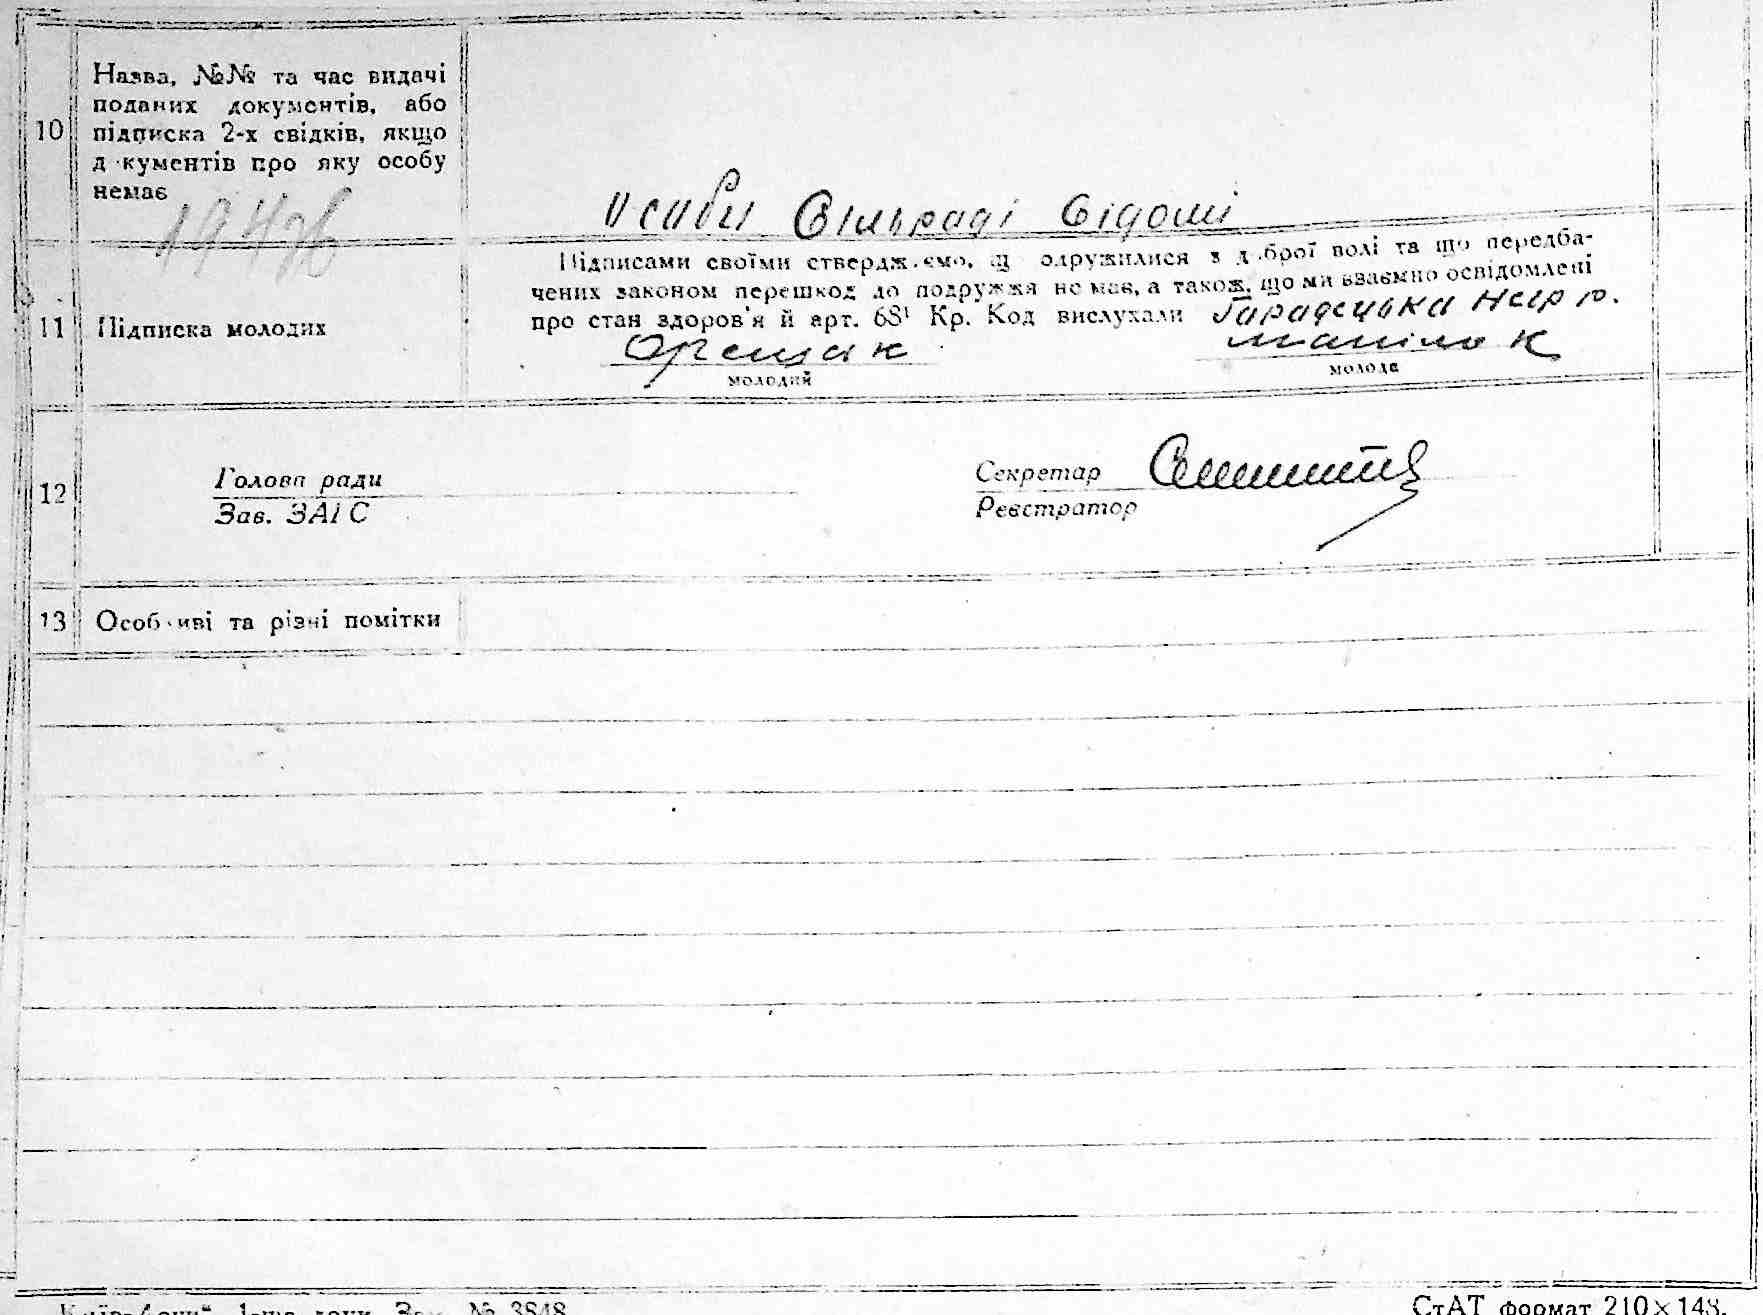 10
Назва, №№ та час видачі
поданих документів, або
підписка 2-х свідків, якщо
д кументів про яку особу
немає
Особи Сільраді відомі
11
Підписка молодих
Підписами своїми стверджуємо, щ одружилися з д брої волі та що передба-
чених законом перешкод до подружжя немає, а також, що ми взаємно освідомлені
про стан здоров'я й арт. 68¹ Кр. Код вислухали
молодий
молода
12
Голова ради
Зав. ЗАГС
Секретар
Реєстратор
13
Особ иві та різні помітки
Зам. № 3848
СтАТ формат 210×148.